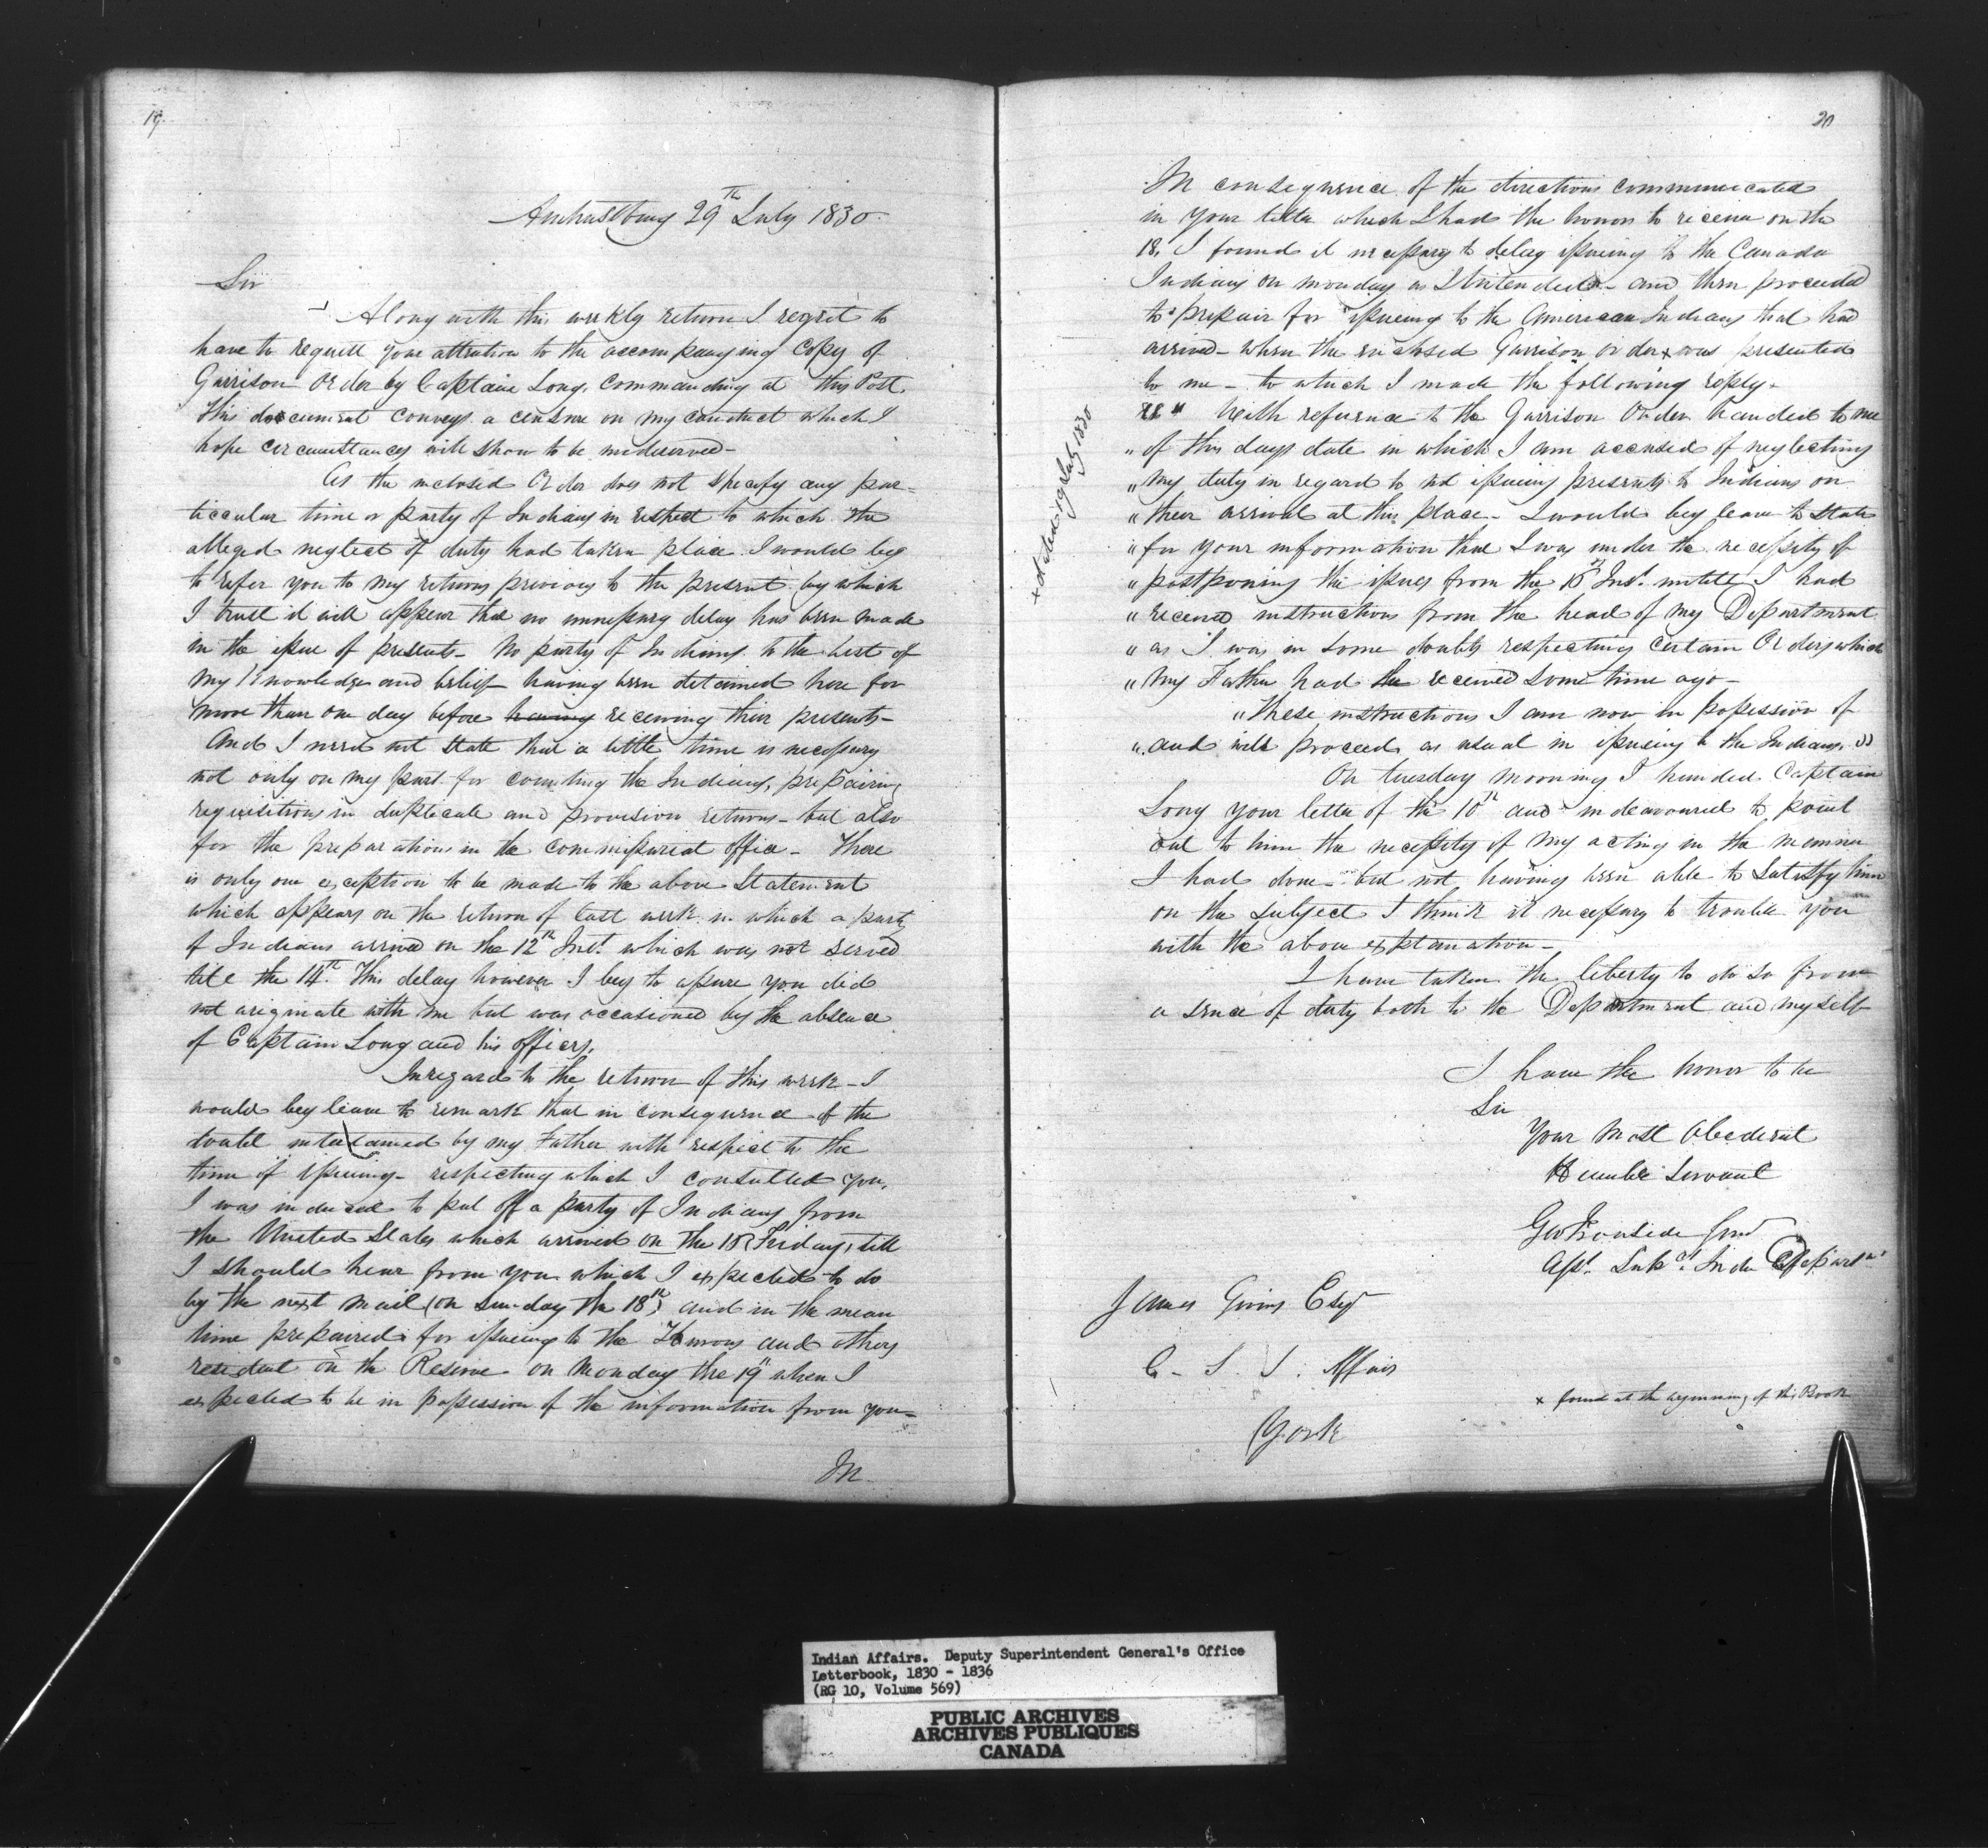 19.
Amherstburg 29th July 1830.
Sir
Along with this weekly return I regret to
have to request your attention to the accompanying Copy of
Garrison Order by Captain Long, Commanding at this Post.
This document conveys a censure on my conduct which I
hope circumstances will show to be undeserved-
As the inclosed Order does not specify any par-
ticcular time or party of Indians in respect to which the
alleged neglect of duty had taken place I would beg
to refer you to my returns previous to the present by which
I trust it will appear that no unnessary delay has been made
in the issue of presents- No party of Indians to the best of
my Knowledge and belief having been detained here for
more than one day before having receiving their presents-
And I need not state that a little time is necessary
not only on my part for counting the Indians, prepairing
requisitions in duplicate and provision returns- but also
for the preparations in the commissariat office- There
is only one exception to be made to the above Statement
which appears on the return of last week in which a party
of Indians arrived on the 12th Inst. which was not served
till the 14th. This delay however I beg to assure you did
not originate with me but was occasioned by the absence
of Captain Long and his officers.
In regard to the return of this week- I
would beg leave to remark that in consequence of the
doubt entertained by my Father with respect to the
time of issueing- respecting which I consulted you,
I was induced to put off a party of Indians from
the United States which arrived on the 15 (Friday) till
I should hear from you which I expected to do
by the next mail (on Sunday the 18th) and in the mean
time prepaired for issueing to the Hurons and others
resident on the Reserve on Monday the 19th when I
expected to be in possession of the information from you-
In
20
In consequence of the directions communicated
in your letter which I had the honor to receive on the
18, I found it necessary to delay issueing to the Canada
Indians on monday as I intended- and then proceeded
to prepair for issueing to the American Indians that had
arrived- when the inclosed Garrison order x was presented
to me- to which I made the following reply-
x dated 19 July 1830
" With refernce to the Garrison Order handed to me
" of this days date in which I am accused of neglecting
" my duty in regard to not issueing presents to Indians on
" their arrival at this place- I would beg leave to state
" for your information that I was under the necessity of
" postponing the issues from the 15th Inst. untill I had
" received instructions from the head of my Department
" as I was in some doubts respecting certain Orders which
" my Father had the received some time ago-
" These instructions I am now in possession of
" and will proceed as usual in issueing to the Indians. "
On tuesday morning I handed Captain
Long your letter of the 10th and indeavoured to point
out to him the necessity of my acting in the manner
I had done- but not having been able to Satisfy him
on the subject I think it necessary to trouble you
with the above explanation-
I have taken the liberty to do so from
a sence of duty both to the Department and myself
I have the honor to be
Sir
Your Most Obedient
Humble Servant
Geo Ironside Junr
Asst. Supt. Indn Departmt
James Givins Esqr
C. S. I. Affairs
York
x found at the beginning of this Book
Indian Affairs. Deputy Superintendent General's Office
Letterbook, 1830 - 1836
(RG 10, Volume 569)
PUBLIC ARCHIVES
ARCHIVES PUBLIQUES
CANADA